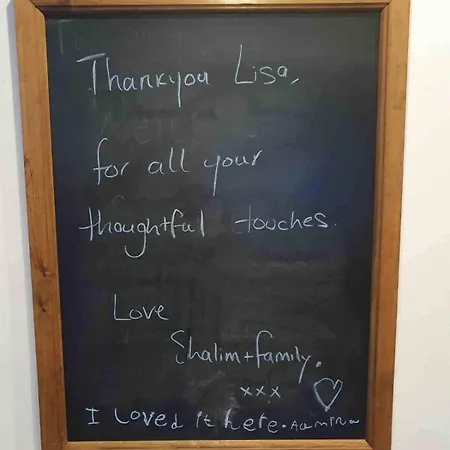 Thankyou Lisa,
for all your
thoughtful touches.
Love
Shalim + family.
xxx
I Loved it here. Aamina